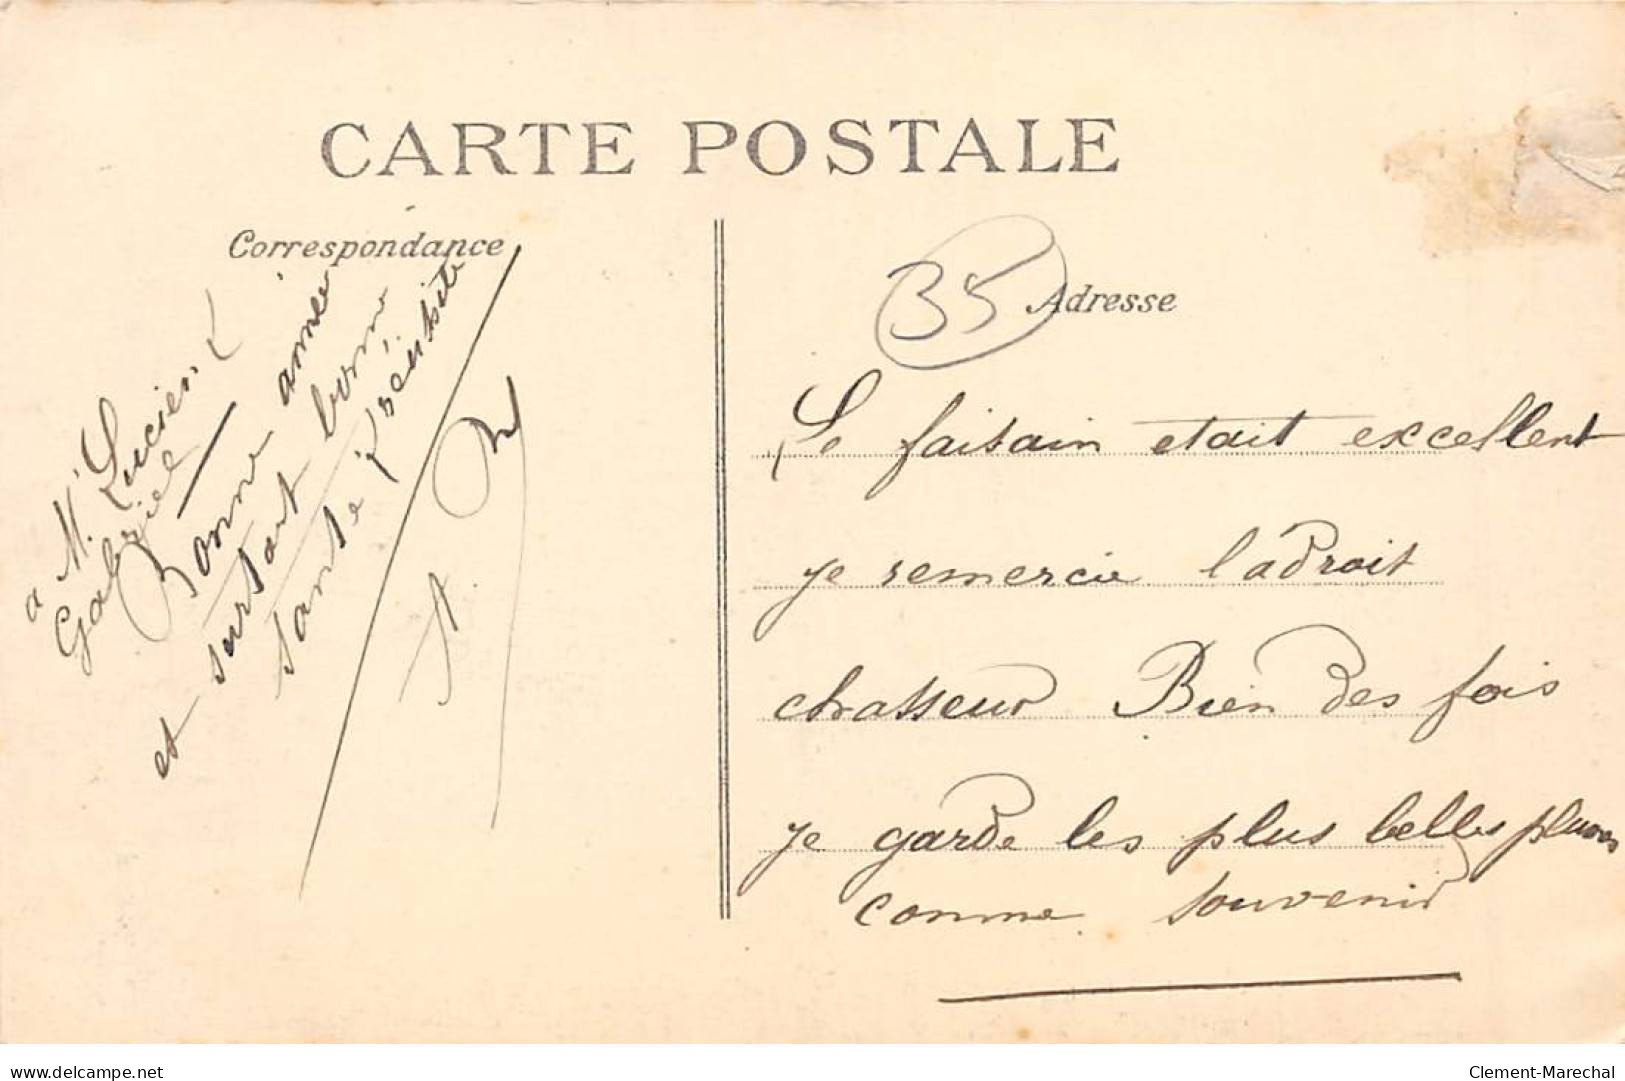 CARTE POSTALE
Correspondance
Adresse
35
a M. Lucien
Gabriel
Bonne année
et surtout bonne
santé réussite
A. M
Le faisain etait excellent
je remercie l'adroit
chasseur Bien des fois
je garde les plus belles plumes
comme souvenir
delcampe.net
Clement-Marechal